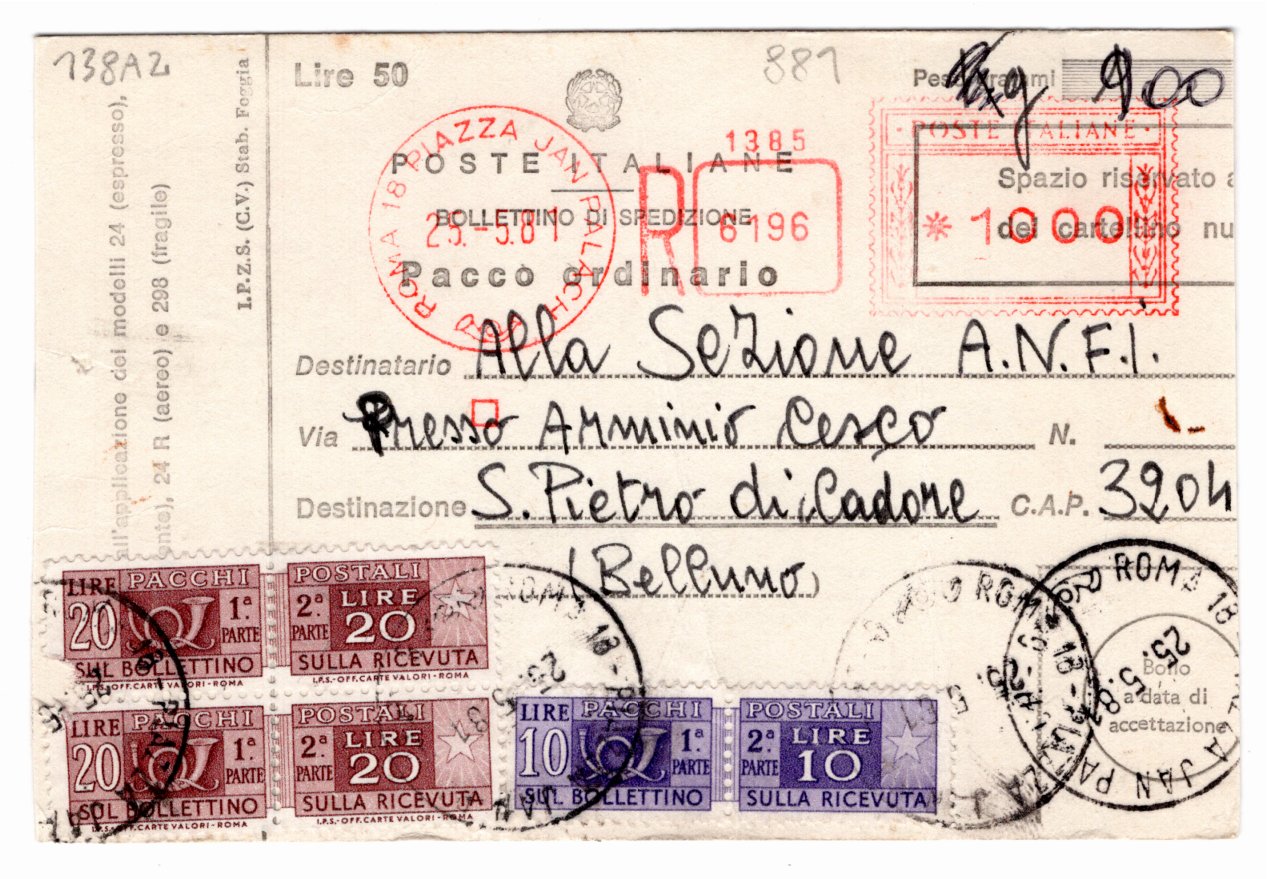 138A2
881
all'applicazione dei modelli 24 (espresso),
24 R (aereo) e 298 (fragile)
I.P.Z.S. (C.V.) Stab. Foggia
Lire 50
Kg 900
POSTE ITALIANE
BOLLETTINO DI SPEDIZIONE
Pacco ordinario
ROMA 18 PIAZZA JAN PALACH
25.-5.81
1385
R 6196
POSTE ITALIANE
*1000
Spazio riservato a
del cartellino nu
Destinatario Alla Sezione A.N.F.I.
Via Presso Arminio Cesco N.
Destinazione S. Pietro di Cadore C.A.P. 3204
(Belluno)
LIRE 20 PACCHI 1ª PARTE SUL BOLLETTINO
POSTALI 2ª PARTE LIRE 20 SULLA RICEVUTA
I.P.S.-OFF.CARTE VALORI-ROMA
I.P.S.-OFF.CARTE VALORI-ROMA
LIRE 20 PACCHI 1ª PARTE SUL BOLLETTINO
POSTALI 2ª PARTE LIRE 20 SULLA RICEVUTA
I.P.S.-OFF.CARTE VALORI-ROMA
I.P.S.-OFF.CARTE VALORI-ROMA
LIRE 10 PACCHI 1ª PARTE SUL BOLLETTINO
POSTALI 2ª PARTE LIRE 10 SULLA RICEVUTA
ROMA 18
25.5.81
JAN PA
Bollo
a data di
accettazione